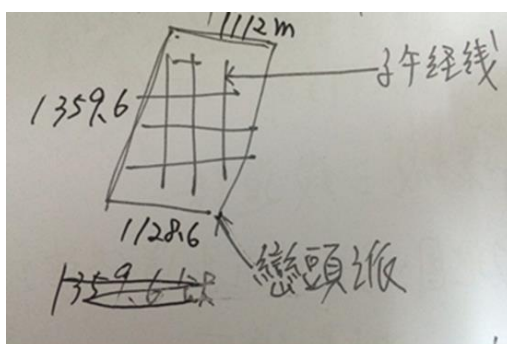 1112m
子午経线
1359.6
1128.6
巒頭派
1359.6